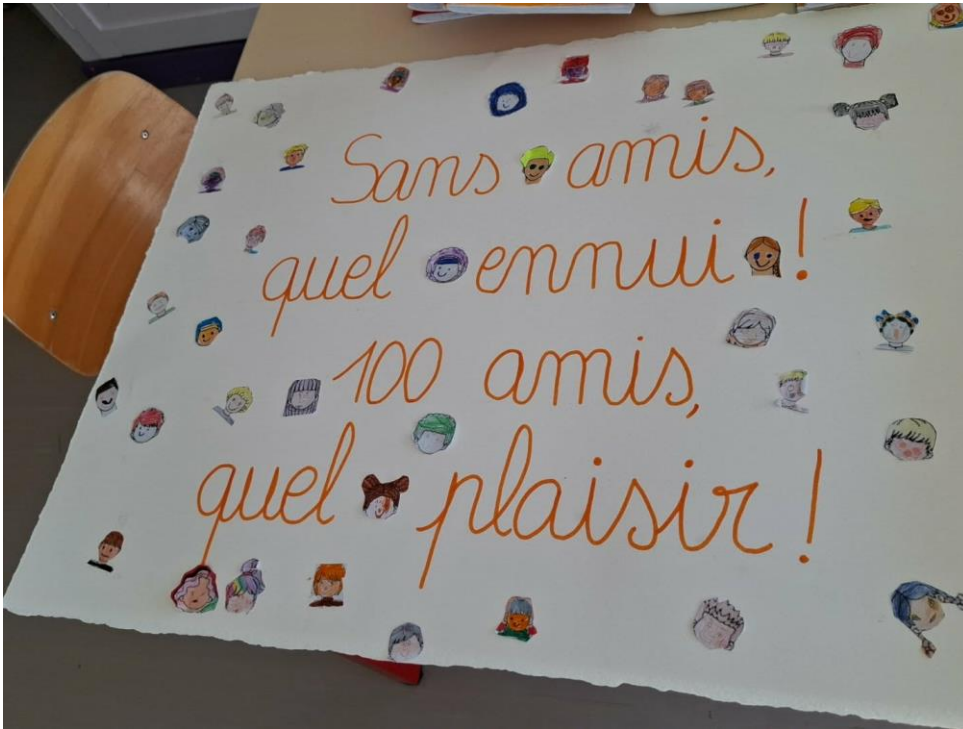 Sans amis,
quel ennui !
100 amis,
quel plaisir !